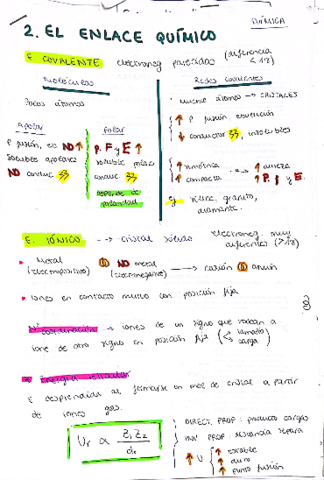 QUÍMICA
2. EL ENLACE QUÍMICO
E. COVALENTE electroneg parecidas (diferencia < 1'7)
Moléculas
Redes covalentes
Pocos átomos
Muchos átomos → CRISTALES
Apolar
Polar
↑ P fusión, ebullición
P fusión, eb NO ↑
P. F y E ↑
↓ conductor, insolubles
solubles apolares
soluble polar
NO conduc
conduc
↑ dureza
↑ compacta
↑ P. f y E.
ej sílice, grafito,
diamante.
E. IÓNICO → cristal sólido electroneg. muy diferentes (> 1'7)
Metal NO metal
(electropositivo) (electronegativo) → catión anión
iones en contacto mutuo con posición fija
Nº coordinación → iones de un signo que rodean a
ione de otro signo en posición fija (tamaño carga)
Energía reticular
E desprendida al formarse un mol de cristal a partir
de iones gas.
Ur α Z1 Z2 / dr
DIRECT. PROP: producto cargas
INV PROP distancia separa
↑ U
↑ estable
↑ duro
↑ punto fusión